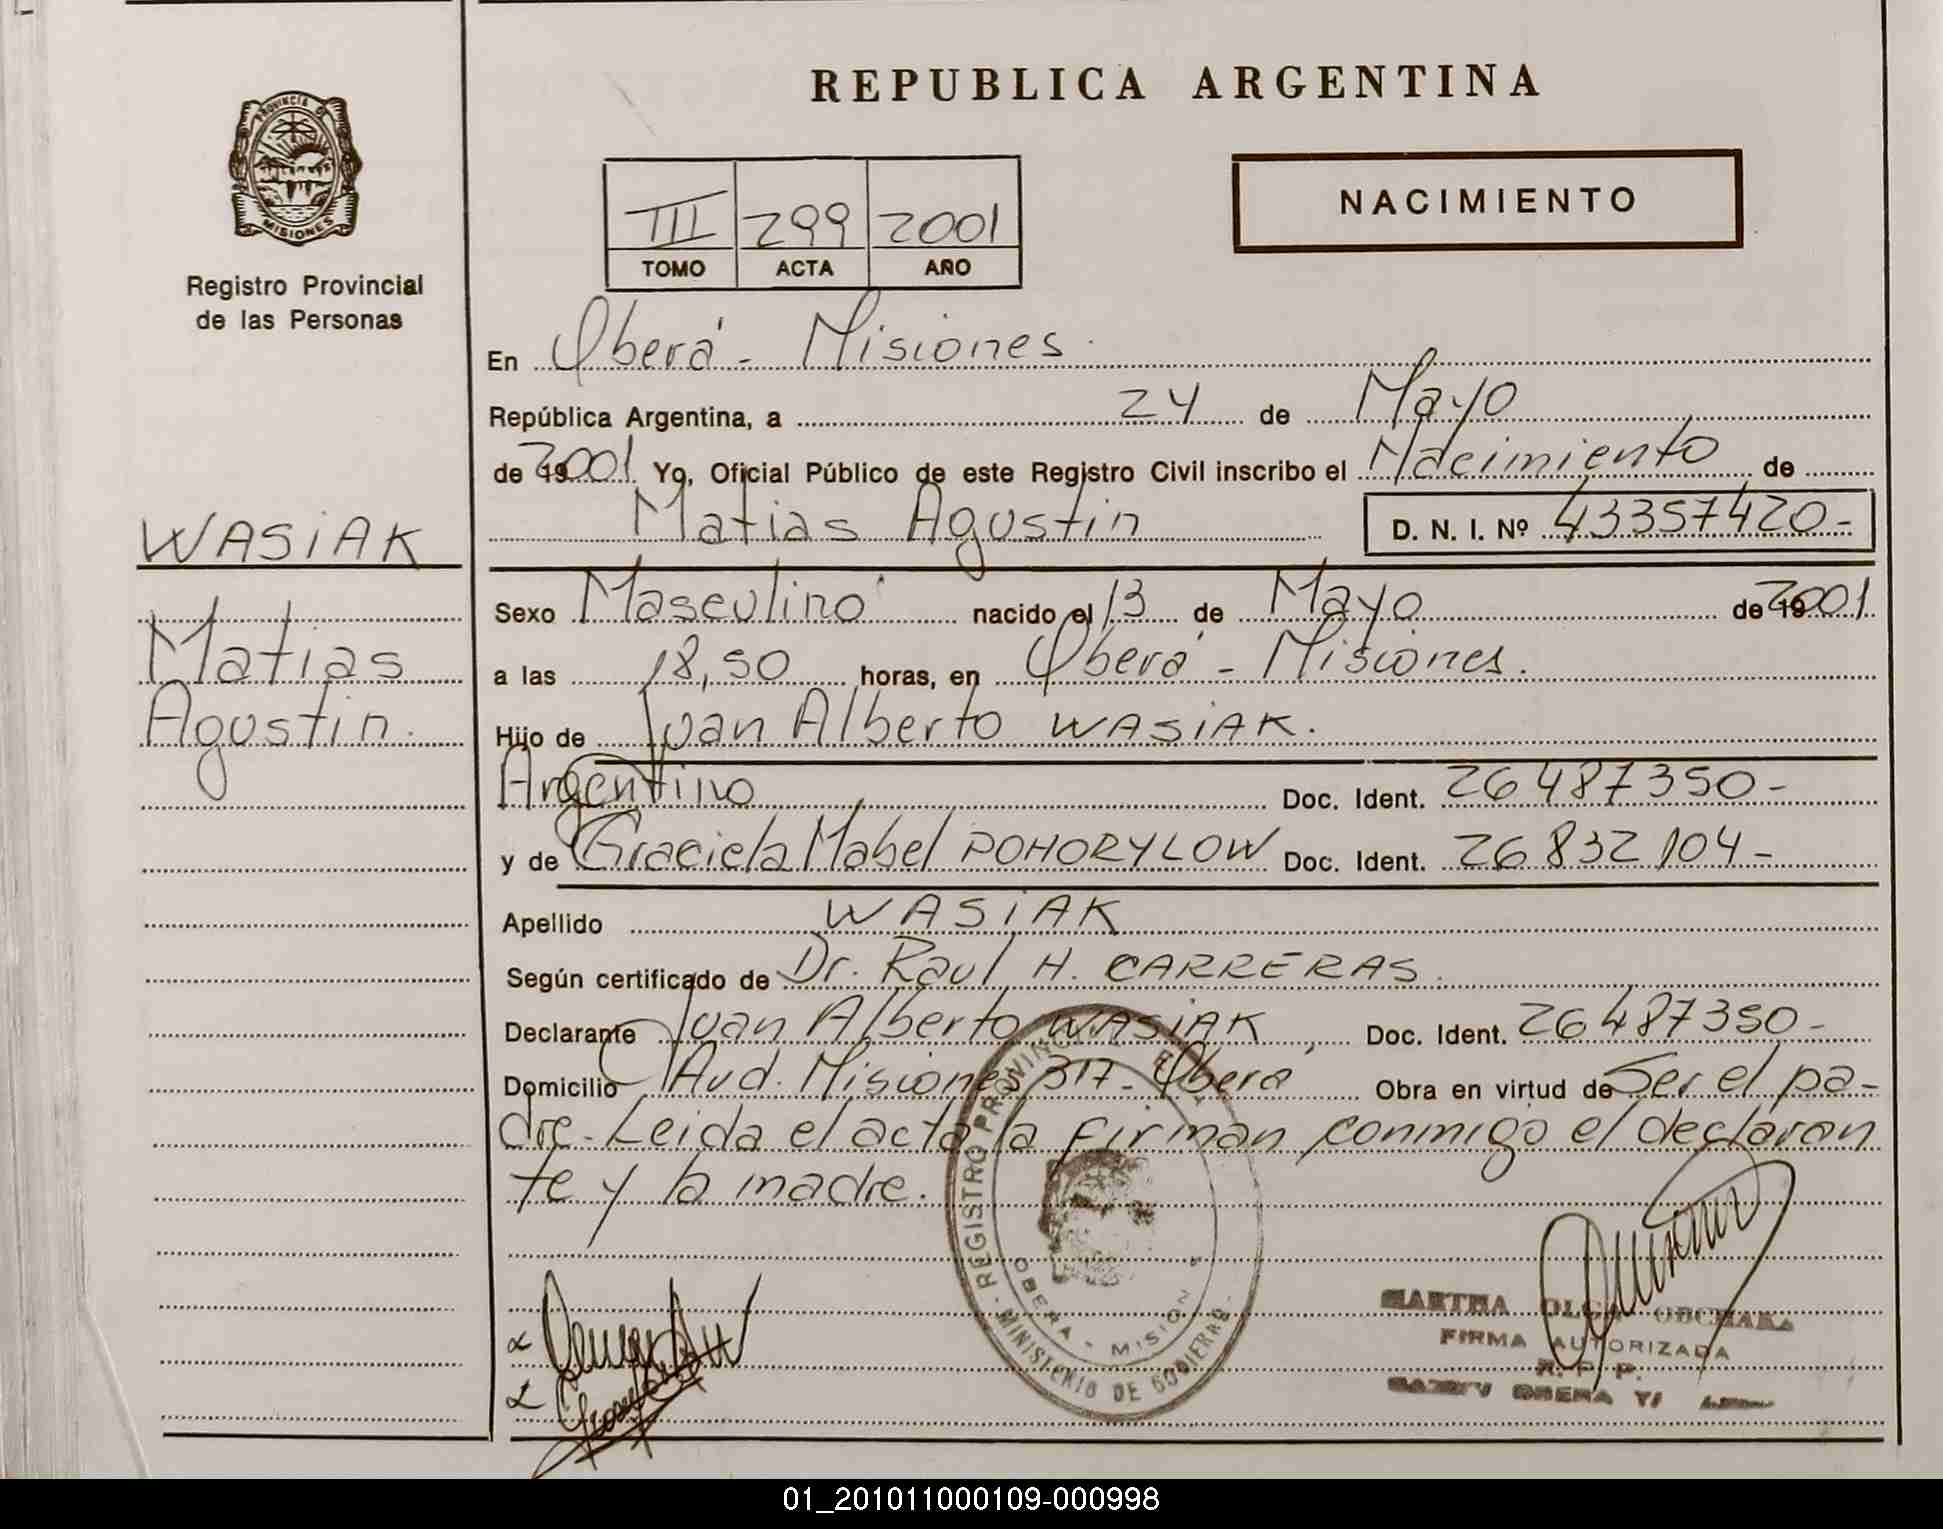 PROVINCIA DE
MISIONES
Registro Provincial
de las Personas
WASIAK
Matias
Agustin.
REPUBLICA ARGENTINA
NACIMIENTO
III 299 2001
TOMO ACTA AÑO
En Oberá - Misiones.
República Argentina, a 24 de Mayo
de 19 2001 Yo, Oficial Público de este Registro Civil inscribo el Nacimiento de
Matias Agustin D. N. I. Nº 43357420-
Sexo Masculino nacido el 13 de Mayo de 19 2001
a las 18,50 horas, en Oberá - Misiones.
Hijo de Juan Alberto WASIAK.
Argentino Doc. Ident. 26487350-
y de Graciela Mabel POHORYLOW Doc. Ident. 26832104-
Apellido WASIAK
Según certificado de Dr. Raul H. CARRERAS.
Declarante Juan Alberto WASIAK, Doc. Ident. 26487350-
Domicilio Avd. Misiones 317- Oberá Obra en virtud de Ser el pa-
dre- Leida el acta la firman conmigo el declaran
te y la madre.
REGISTRO PROVINCIAL
OBERA - MISIONES
MINISTERIO DE GOBIERNO
MARTHA OLGA
FIRMA AUTORIZADA
R. P. P.
OBERA
01_201011000109-000998